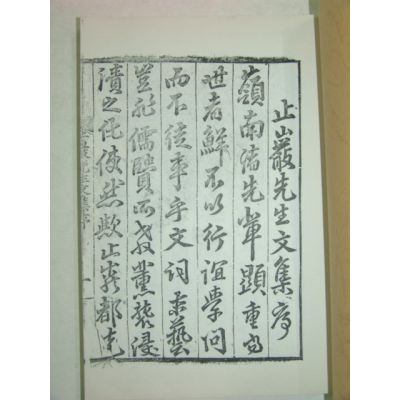 止巖先生文集序
嶺南諸先輩顯重當
世者鮮不以行誼學問
而不徒事乎文詞末藝
豈非儒賢所教薰襲浸
漬之化使然歟止巖都